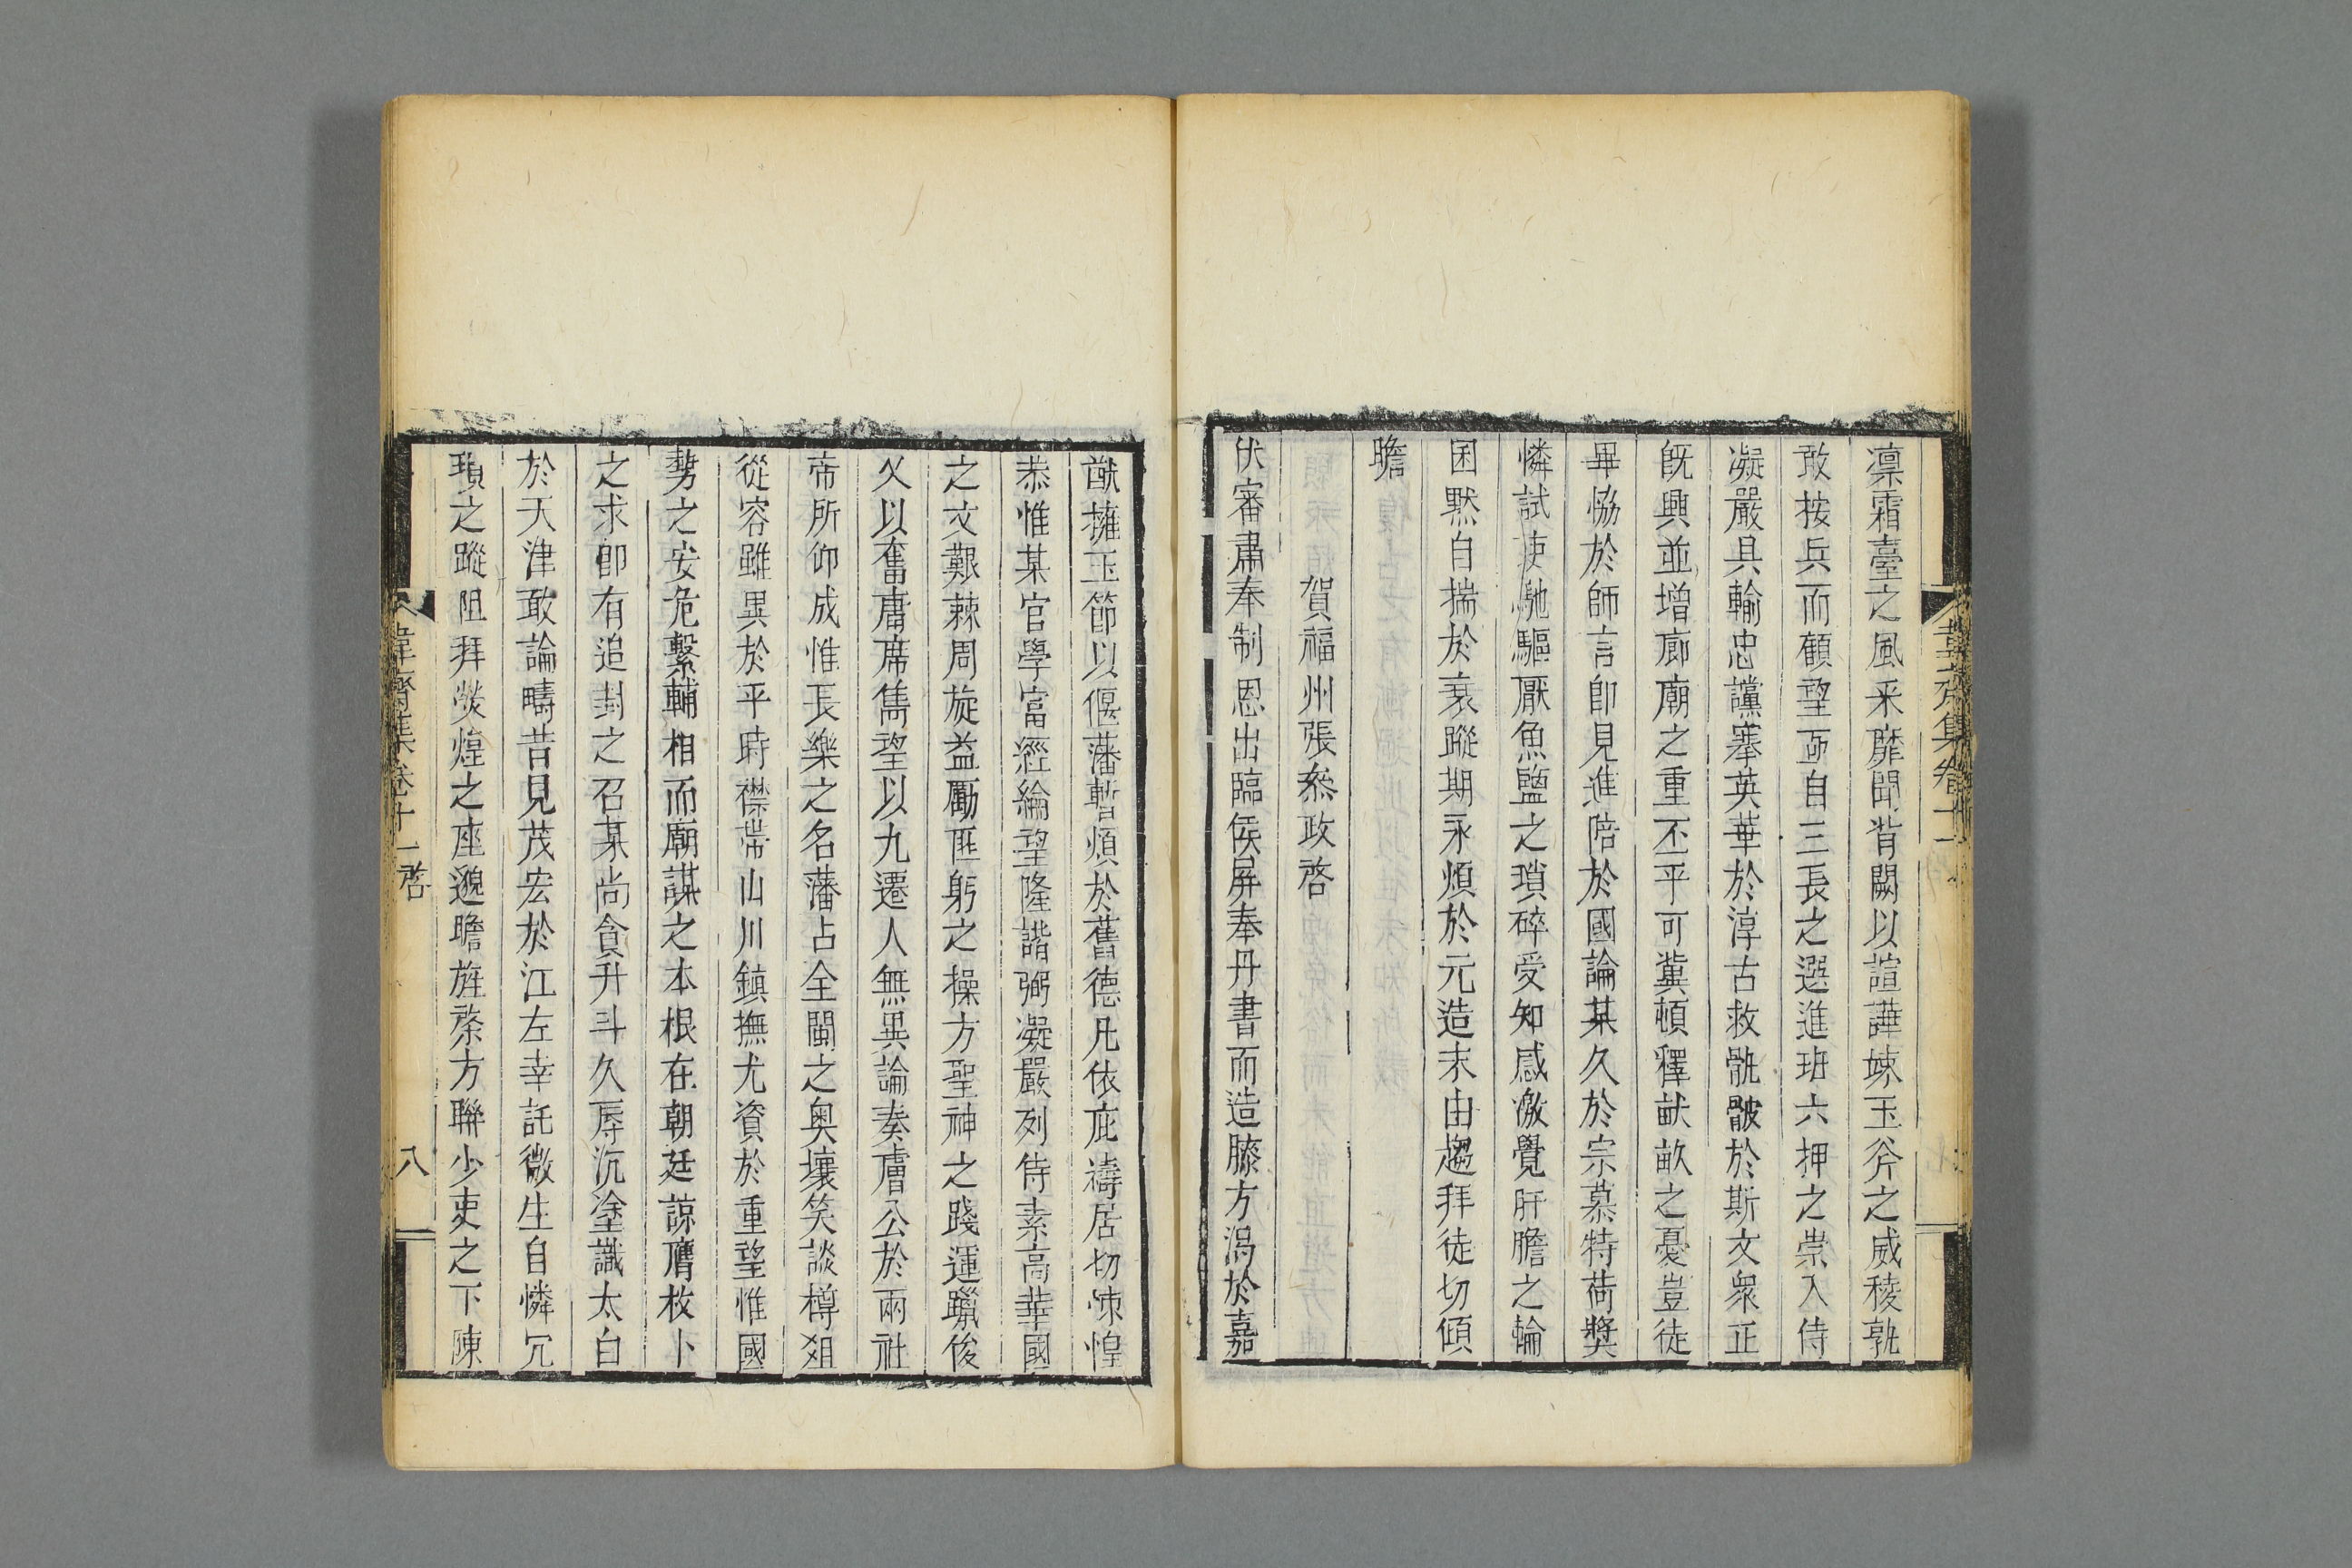 凛霜臺之風采靡聞背闕以諠譁竦玉斧之威稜孰
敢按兵而顧望面自三長之選進班六押之崇入侍
凝嚴具輸忠讜搴英華於淳古救骫骳於斯文衆正
旣興並增廊廟之重丕平可冀頓釋畎畝之憂豈徒
畢協於師言卽見進陪於國論某久於宗慕特荷奬
憐試吏馳驅厭魚鹽之瑣碎受知感激覺肝膽之輪
囷默自揣於衰蹤期永煩於元造末由趨拜徒切傾
瞻
賀福州張叅政啓
伏審肅奉制恩出臨侯屏奉丹書而造膝方渴於嘉
猷擁玉節以偃藩暫煩於舊德凡依庇禱居切悚惶
恭惟某官學富經綸望隆諧弼凝嚴列侍素高華國
之文艱棘周旋益勵匪躬之操方聖神之踐運躐俊
乂以奮庸席儁望以九遷人無異論奏膚公於兩社
帝所仰成惟長樂之名藩占全閩之奥壤笑談樽俎
從容雖異於平時襟帶山川鎮撫尤資於重望惟國
勢之安危繫輔相而廟謀之本根在朝廷諒膺枚卜
之求卽有追封之召某尚貪升斗久辱沉塗識太白
於天津敢論疇昔見茂宏於江左幸託微生自憐冗
瑣之蹤阻拜熒煌之座邈瞻旌棨方聯少吏之下陳
韋齋集卷十一 啓
八
韋齋集卷十一